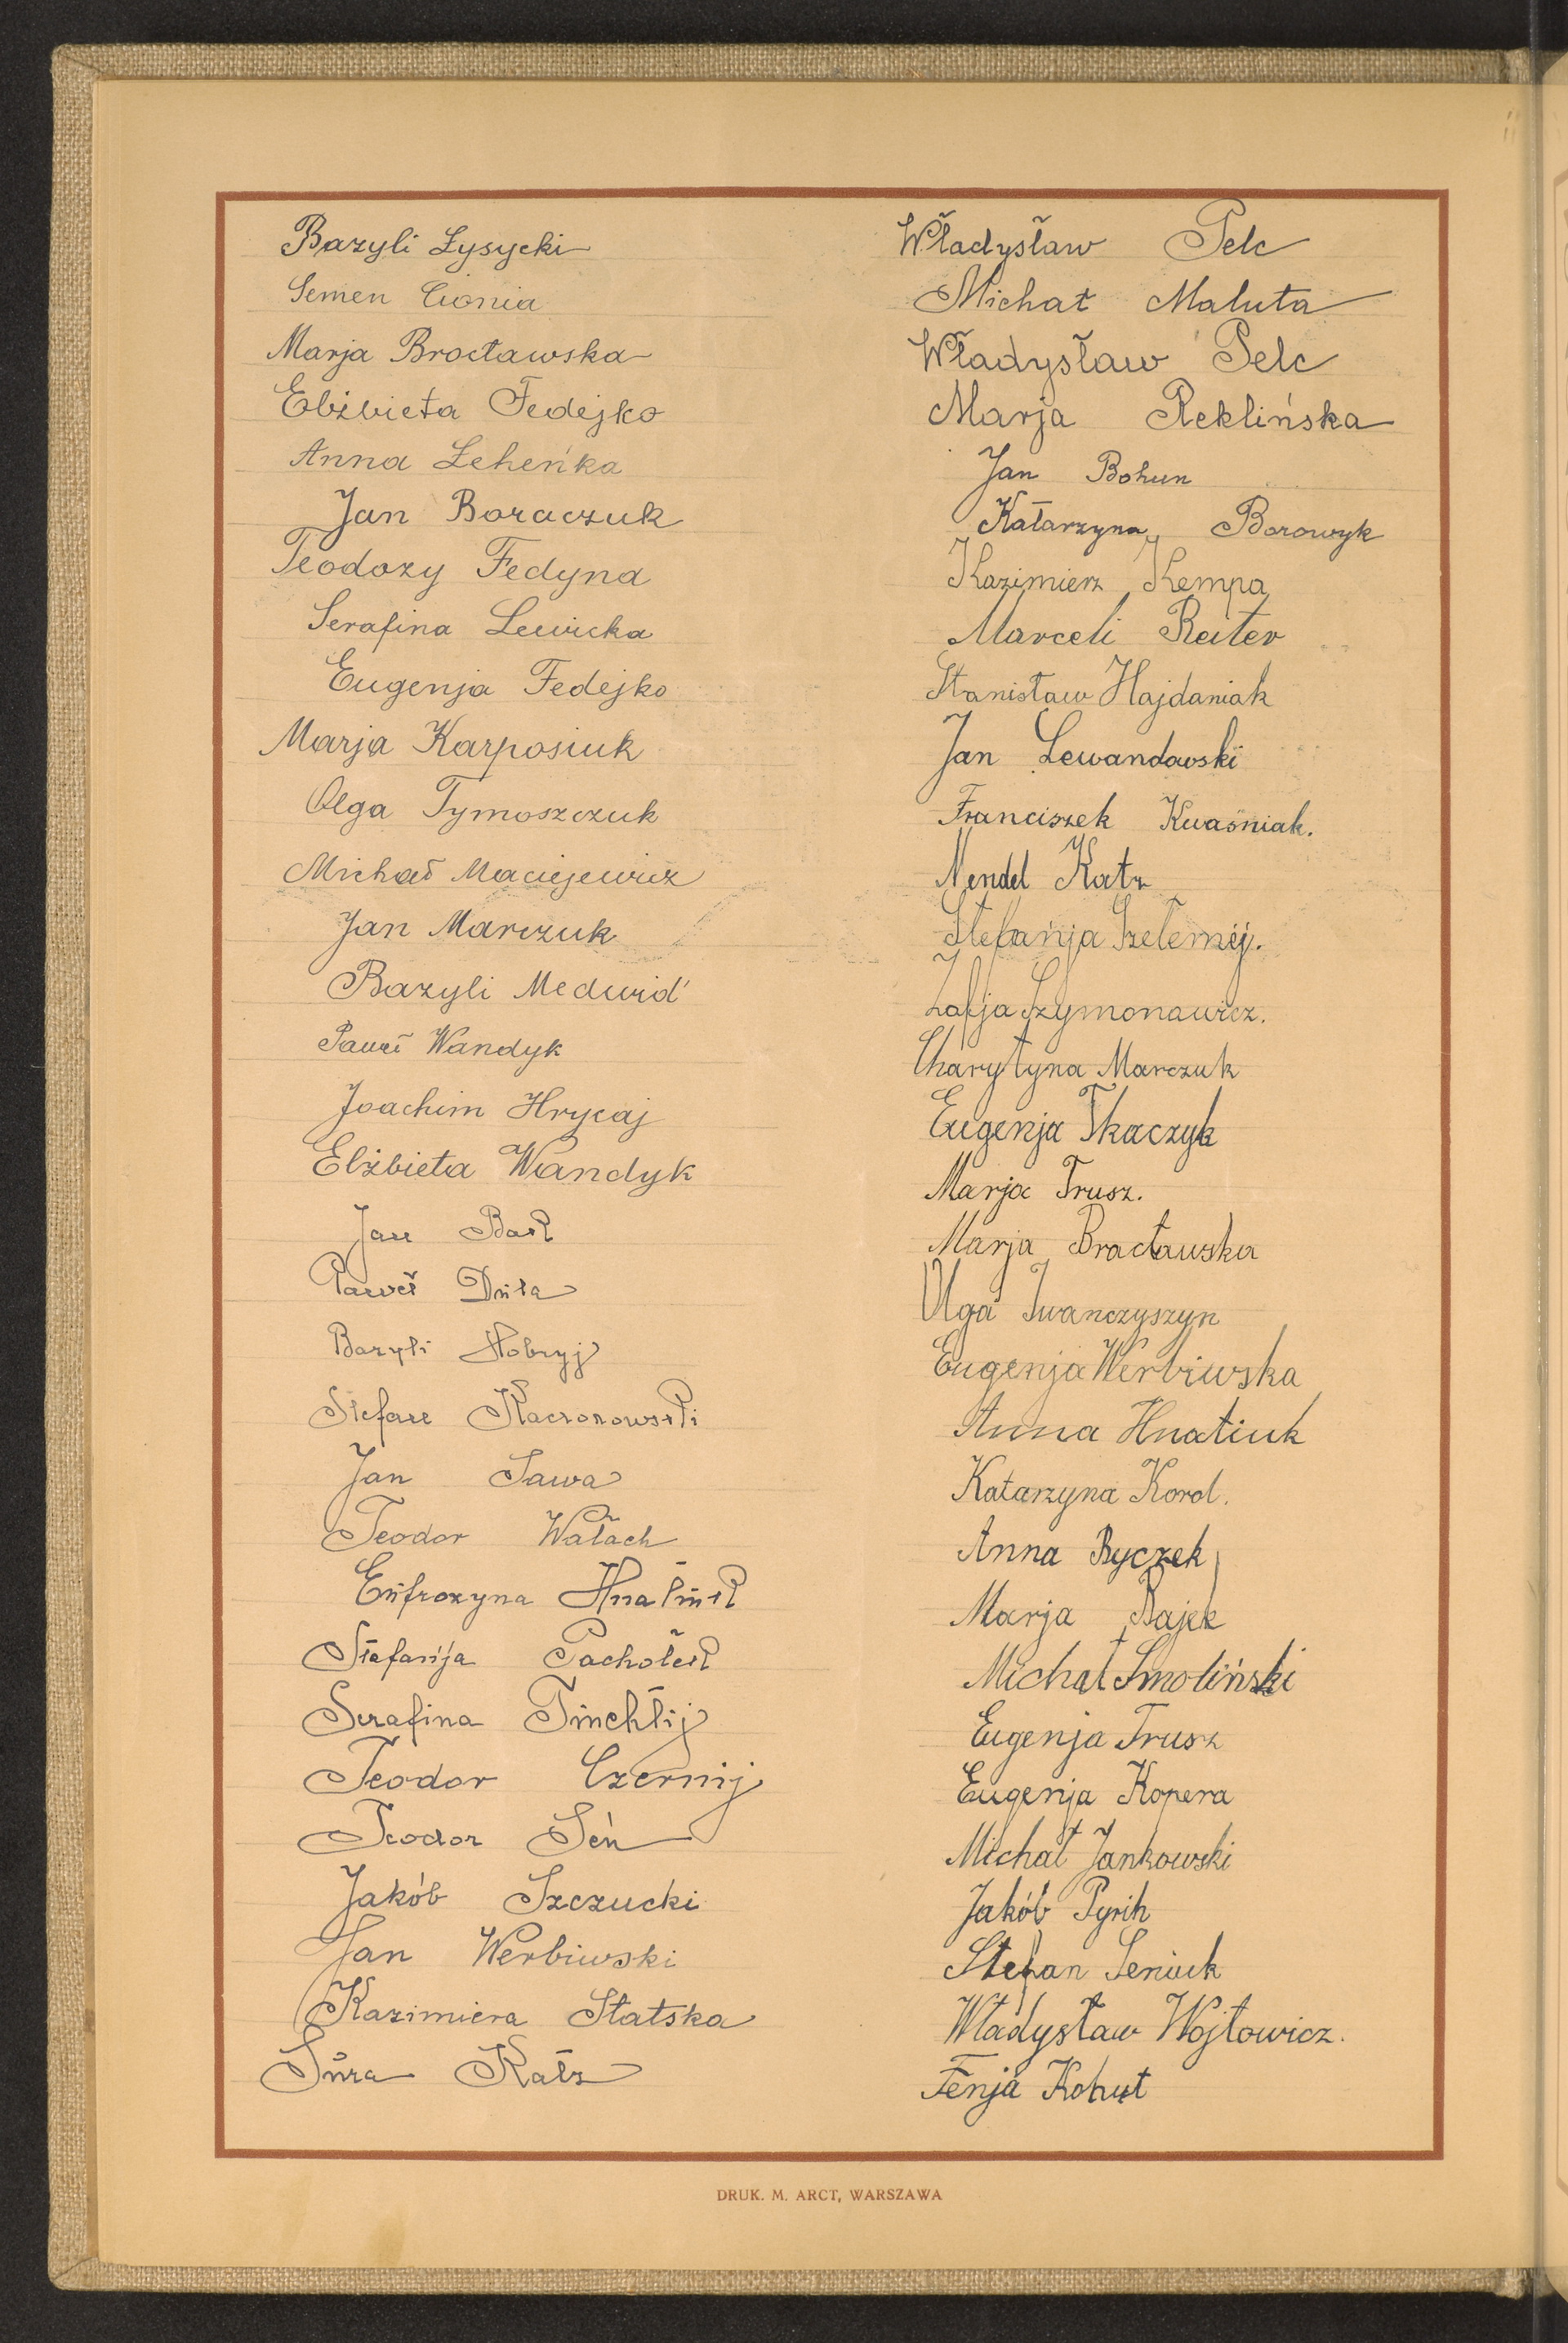 Bazyli Łysycki
Semen Cionia
Marja Brocławska
Elżbieta Fedejko
Anna Leheńka
Jan Boraczuk
Teodozy Fedyna
Serafina Lewicka
Eugenja Fedejko
Marja Karposiuk
Olga Tymoszczuk
Michał Maciejewicz
Jan Marczuk
Bazyli Medwid'
Paweł Wandyk
Joachim Hrycaj
Elżbieta Wandyk
Jan Bak
Paweł Duła
Bazyli Hobryj
Stefan Kaczorowski
Jan Sawa
Teodor Wałach
Eufrozyna Hnatiuk
Stefanja Pachołek
Serafina
Teodor Czernij
Teodor Seń
Jakób Szczucki
Jan Werbiwski
Kazimiera Statska
Sura Katz
Władysław Pelc
Michał Maluta
Władysław Pelc
Marja Reklińska
Jan Bohun
Katarzyna Borowyk
Kazimierz Kempa
Marceli Reiter
Stanisław Hajdaniak
Jan Lewandowski
Franciszek Kwaśniak.
Mendel Katz
Stefanja Szelemij.
Zofja Szymonowicz.
Charytyna Marczuk
Eugenja Tkaczyk
Marja Trusz.
Marja Bracławska
Olga Iwanczyszyn
Eugenja Werbiwska
Anna Hnatiuk
Katarzyna Korol.
Anna Byczek
Marja Bajek
Michał Smoliński
Eugenja Trusz
Eugenja Kopera
Michał Jankowski
Jakób Pyrih
Stefan Seniuk
Władysław Wojtowicz.
Fenja Kohut
DRUK. M. ARCT, WARSZAWA